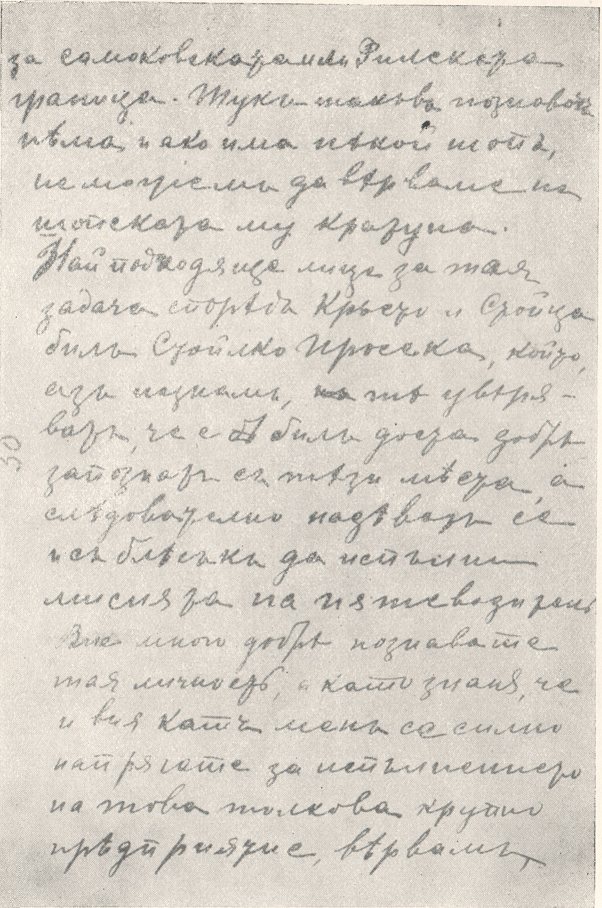 за самоковската или Рилската
граница. Тукъ такъвъ познавачъ
нѣма, и ако има нѣкой шопъ,
не можемъ да вѣрваме на
шопската му кратуна.
Най подходяще лице за тая
задача споредъ Кръсто и Стойца
билъ Стоилко Просека, който,
азъ незнамъ, но тѣ увѣря-
ватъ, че е билъ доста добрѣ
запознатъ съ тѣзи мѣста, а
слѣдователно надѣватъ се
исъ блѣсъкъ да испълни
мисията на пѫтеводителъ
Вие много добрѣ познавате
тая личность, а като зная, че
и вия катъ менъ се силно
напрягате за испълнението
на това толкова крупно
прѣдприятие, вѣрвамъ,
50